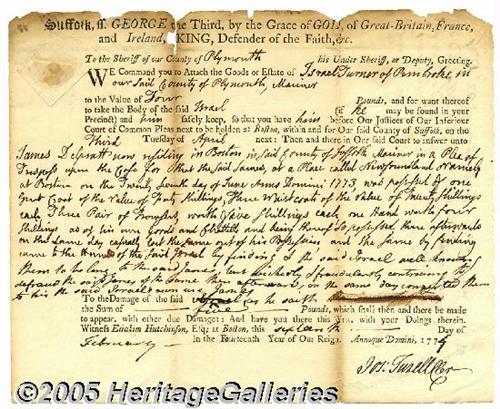 Suffolk, ss. GEORGE the Third, by the Grace of GOD, of Great-Britain, France,
and Ireland, KING, Defender of the Faith, &c.
To the Sheriff of our County of Plymouth his Under Sheriff, or Deputy, Greeting.
WE Command you to Attach the Goods or Estate of Israel Turner of Pembroke in
our Said County of Plymouth, Mariner
to the Value of Four Pounds, and for want thereof
to take the Body of the said Israel (if he may be found in your
Precinct) and him safely keep, so that you have him before Our Justices of Our Inferiour
Court of Common Pleas next to be holden at Boston, within and for Our said County of Suffolk, on the
Third Tuesday of April next: Then and there in Our said Court to answer unto
James now residing in Boston in Said County of Suffolk Mariner in a Plea of
Trespass upon the Case For that the Said James, at a Place called Newfoundland namely
at Boston on the Twenty Seventh day of June Anno Domini 1773, was possessed of one
Great Coat of the Value of Forty Shillings, Three Waistcoats of the Value of Twenty Shillings
each Three Pair of Trousers, worth Shillings each, one worth four
Shillings as of his own Goods and Chattels and being thereof So possessed there afterwards
on the Same day casually lost the Same out of his Possession and the Same by finding
came to the Hands of the Said Israel by finding & the said Israel well knowing
them to belong to the said James, but fraudulently contriving to
defraud the said James of the Same there afterwards, on the same day converted them
to his the said Israel's own use
To the Damage of the said James (as he saith
the Sum of five Pounds, which shall then and there be made
to appear, with other due Damage: And have you there this Writ, with your Doings therein.
Witness Eliakim Hutchinson, Esq; at Boston, this sixteenth Day of
February In the Fourteenth Year of Our Reign. Annoque Domini, 1774
Jos. Tyrell Cler
©2005 HeritageGalleries